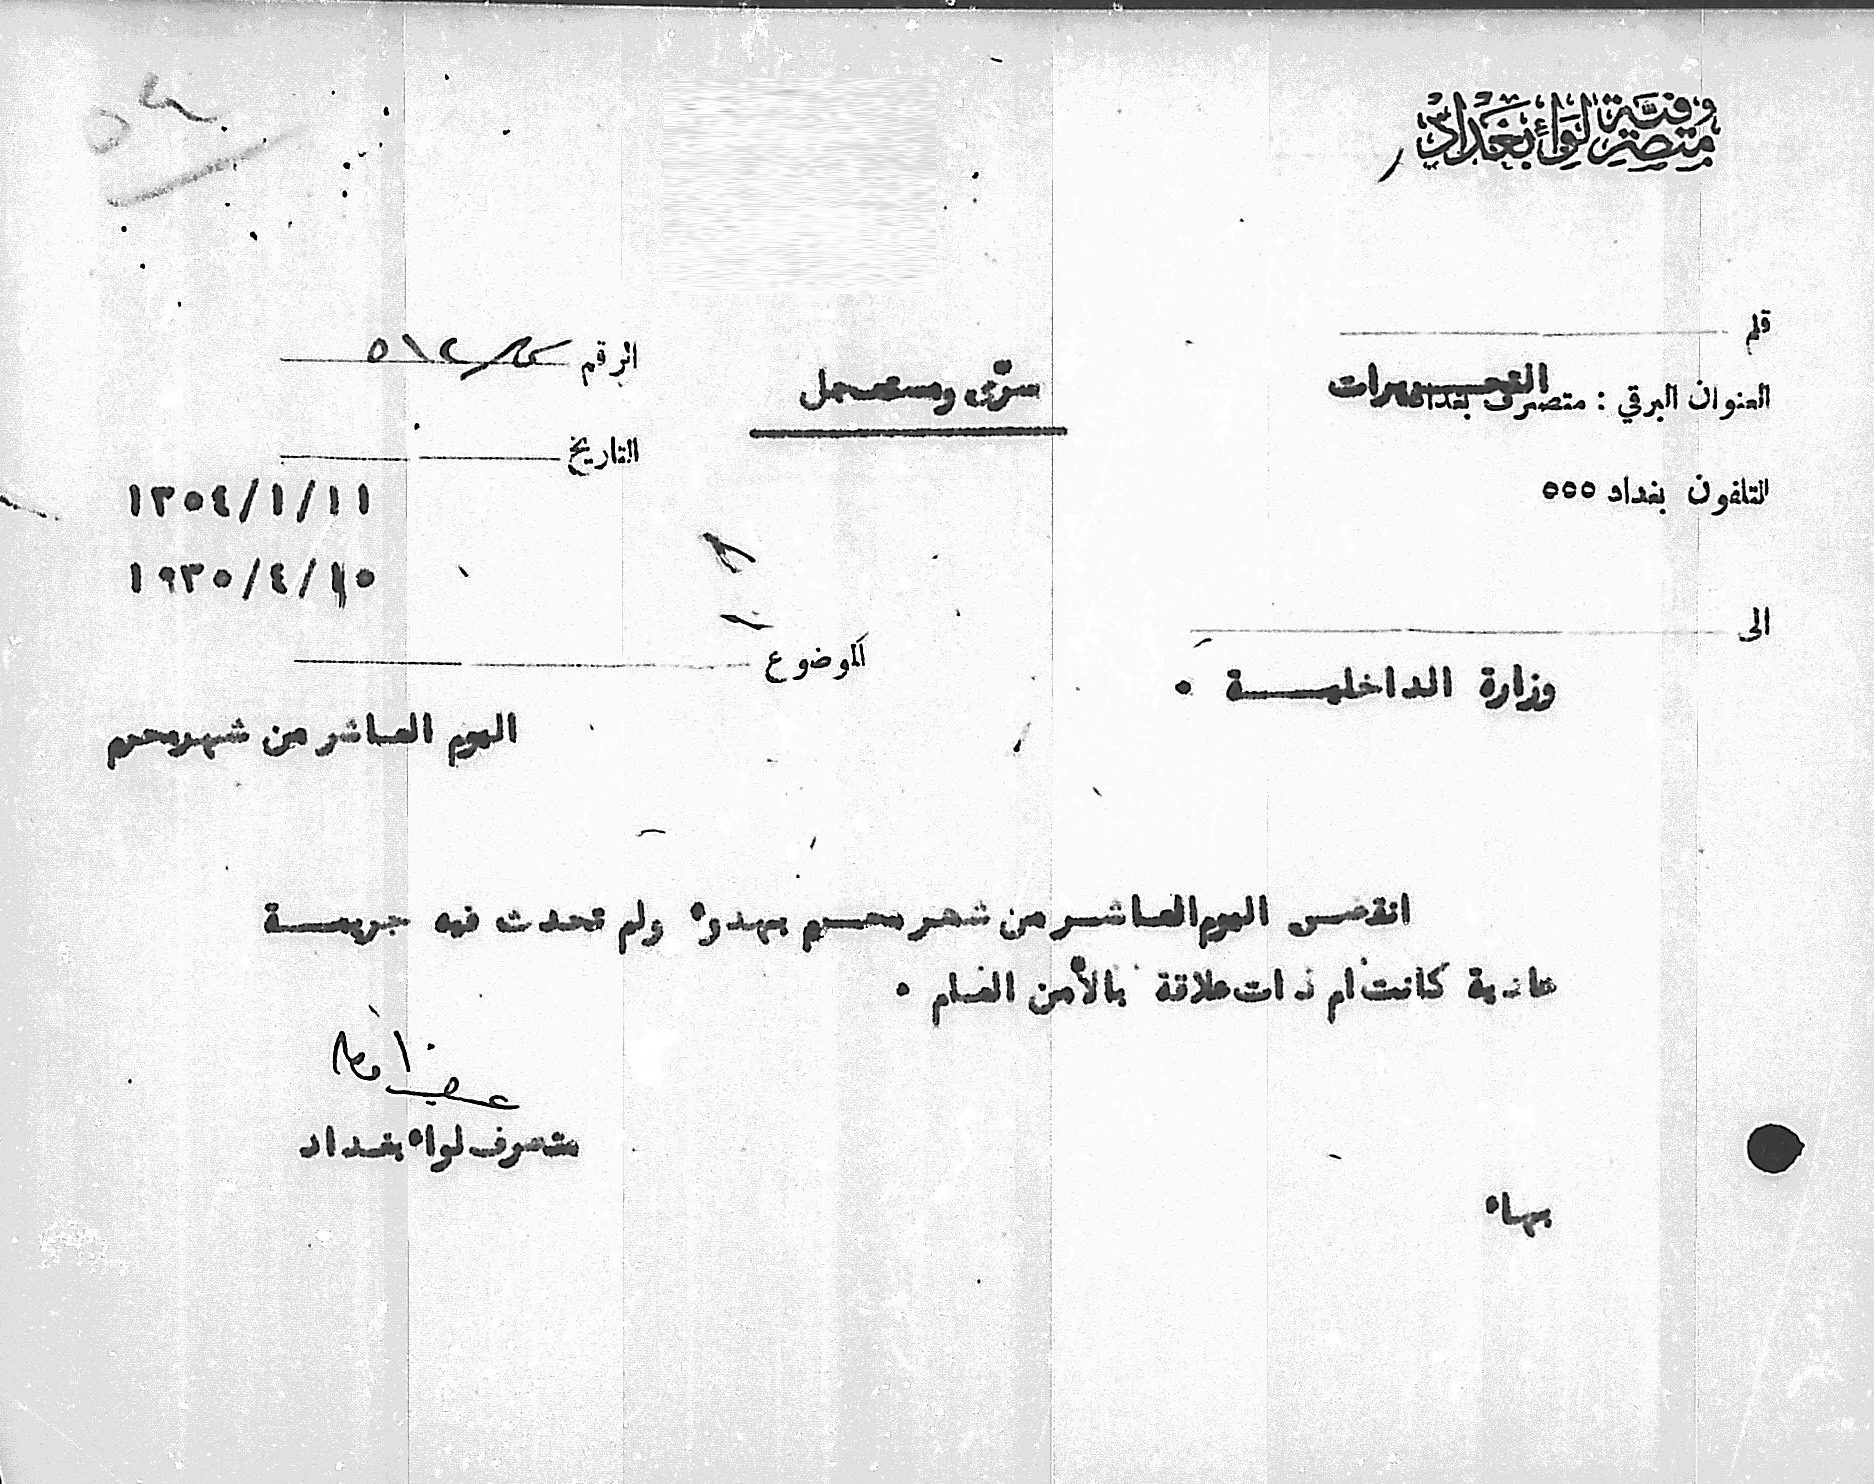 متصرفية لواء بغداد
قلم
التحريرات
العنوان البرقي : متصرف بغداد
التلفون بغداد ٥٥٥
سرّى ومستعجل
الرقم
التاريخ
١٣٥٤/١/١١
١٩٣٥/٤/١٥
الى
وزارة الداخليـــة ٠
الموضوع
اليوم العاشر من شهر محرم
انقضى اليوم العاشر من شهر محرم بهدوء ولم تحدث فيه جريمـة
عادية كانت ام ذات علاقة بالأمن العام ٠
متصرف لواء بغداد
بهاء